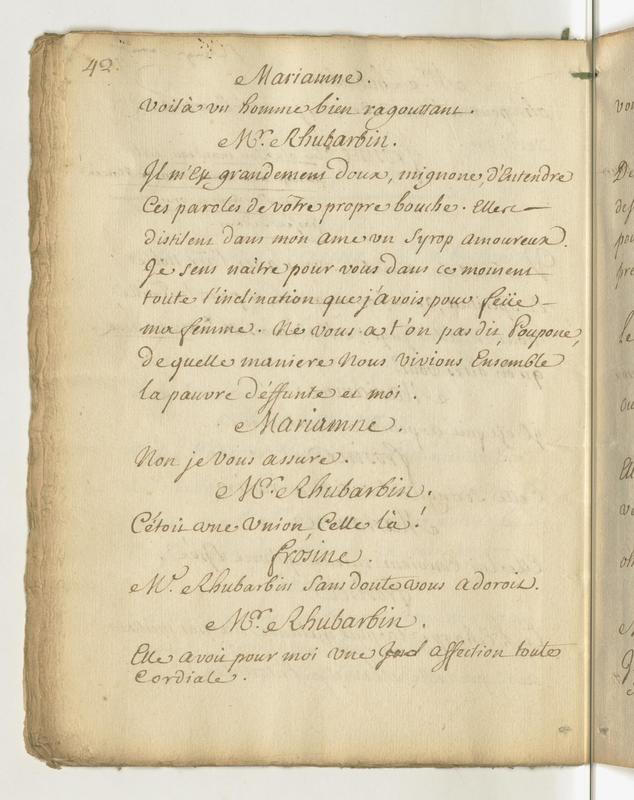 42.
Mariamne.
Voilà un homme bien ragouttant.
Mr. Rhubarbin.
Il m'Est grandement doux, mignone, d'Entendre
Ces paroles de votre propre bouche. Elles
distilent dans mon ame un Syrop amoureux.
Je sens naître pour vous dans ce moment
toute l'inclination que j'avois pour feüe
ma femme. Ne vous a t'on pas dit, Poupone,
de quelle maniere Nous vivions Ensemble
la pauvre déffunte et moi.
Mariamne.
Non je vous assure.
Mr. Rhubarbin.
C'étoit une Union Celle là!
frósine.
Mr. Rhubarbin Sans doute vous adoroit.
Mr. Rhubarbin.
Elle avoit pour moi une affection toute
Cordiale.